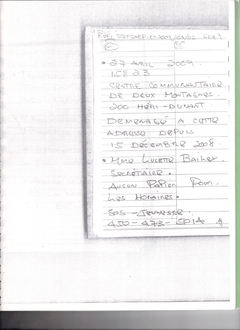 • 27 AVRIL 2009.
11 H 23
CENTRE COMMUNAUTAIRE
DE DEUX MONTAGNES.
200 HENRI-DUNANT
DEMENAGÉ A CETTE
ADRESSE DEPUIS
15 DÉCEMBRE 2008.
• MME LUCETTE BAILEY
SECRÉTAIRE.
AUCUN
LES HORAIRES.
SOS - JEUNESSE.
450-473-